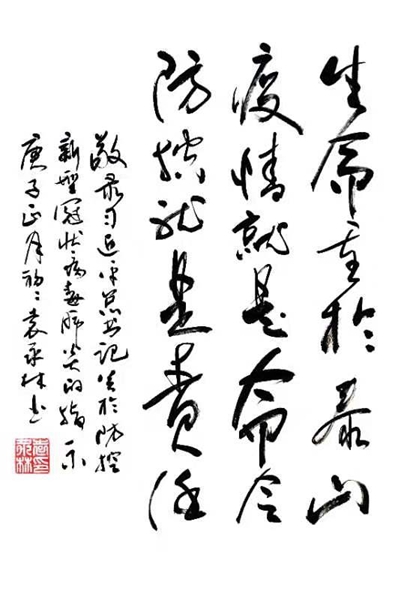 生命重於泰山
疫情就是命令
防控就是责任
敬录习近平总书记关於防控
新型冠状病毒肺炎的指示
庚子正月初二袁承林书